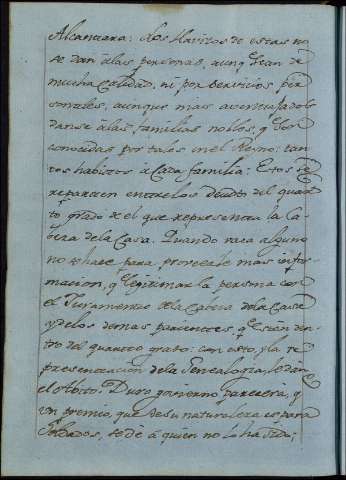 Alcantara: Los Havitos de estas no
se dan à las personas, aunq̃ sean de
mucha calidad, ni por servicios per
sonales, aunque mas aventajados
danse à las familias nobles, q̃ son
conocidas por tales en el Reyno: tan
tos habitos à Cada familia: Estos se
reparten entre los deudos del quar
to grado de el que representa la Ca-
beza de la Casa. Quando vaca alguno
no se haze para proveerle mas infor
macion, q̃ legitimar la persona con
el Juramento de la Cabeza de la Casa
y de los demas parientes, q̃ esten den
tro del quarto grado: con esto, y la re
presentacion de la Genealogia, le dan
el abito. Duro govierno pareceria, q̃
un premio, que de su naturaleza es para
Soldados, se dè à quien no lo ha sido;